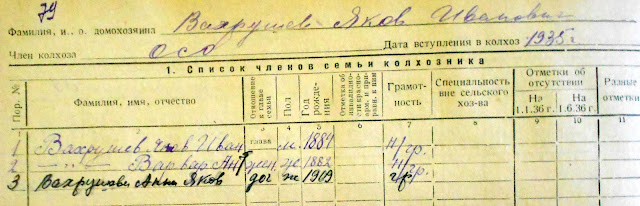 79
Фамилия, и., о. домохозяина Вахрушев Яков Иванович
Член колхоза ОСО Дата вступления в колхоз 1935 г
1. Список членов семьи колхозника
Пор. № Фамилия, имя, отчество Отношение к главе семьи Пол Год рождения Отметка об Грамотность Специальность вне сельского хоз-ва Отметки об отсутствии Разные отметки
На 1.1.36 г. На 1.6.36 г.
3 4 5 6 7 8 9 10 11
1 Вахрушев Яков Иван глава м 1884 н/гр.
2 —"— Варвар Ан жен ж 1882 н/гр.
3 Вахрушева Анна Яков доч ж 1909 г/р